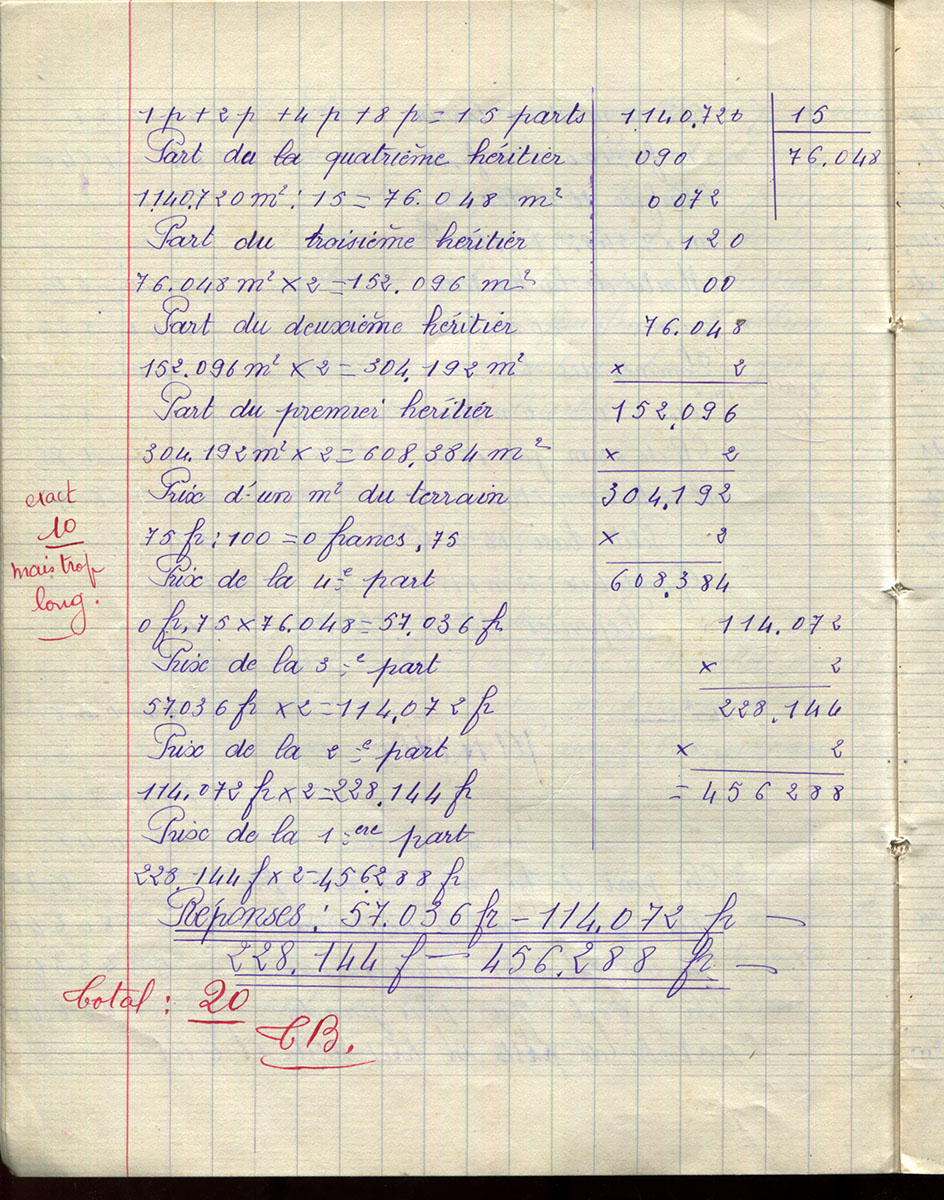 1 p + 2 p + 4 p + 8 p = 15 parts
Part de la quatrième héritier
1.140.720 m² : 15 = 76.048 m²
Part du troisième héritier
76.048 m² × 2 = 152.096 m²
Part du deuxième héritier
152.096 m² × 2 = 304.192 m²
Part du premier heritier
304.192 m² × 2 = 608.384 m²
Prix d'un m² du terrain
75 fr : 100 = 0 francs,75
Prix de la 4e part
0 fr,75 × 76.048 = 57.036 fr
Prix de la 3e part
57.036 fr × 2 = 114.072 fr
Prix de la 2e part
114.072 fr × 2 = 228.144 fr
Prix de la 1ere part
228.144 f × 2 = 456288 fr
1.140.720 | 15
090 | 76.048
0072
120
00
76.048
× 2
152.096
× 2
304.192
× 2
608.384
114.072
× 2
228.144
× 2
= 456288
exact
10
mais trop
long.
Réponses : 57.036 fr – 114.072 fr –
228.144 f – 456.288 fr –
total : 20
TB.